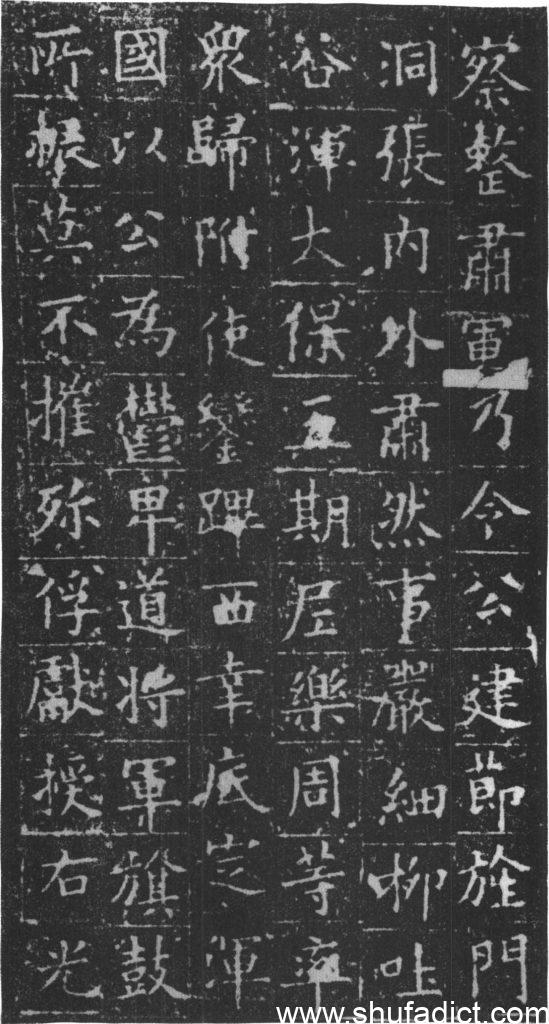 察整肅軍乃令公建節旌門
洞張內外肅然事嚴細柳吐
谷渾大保五期尼樂周等率
眾歸附使鑾蹕西幸底定渾
國以公為鬱卑道將軍旗鼓
所振莫不摧殄俘獻授右光
www.shufadict.com